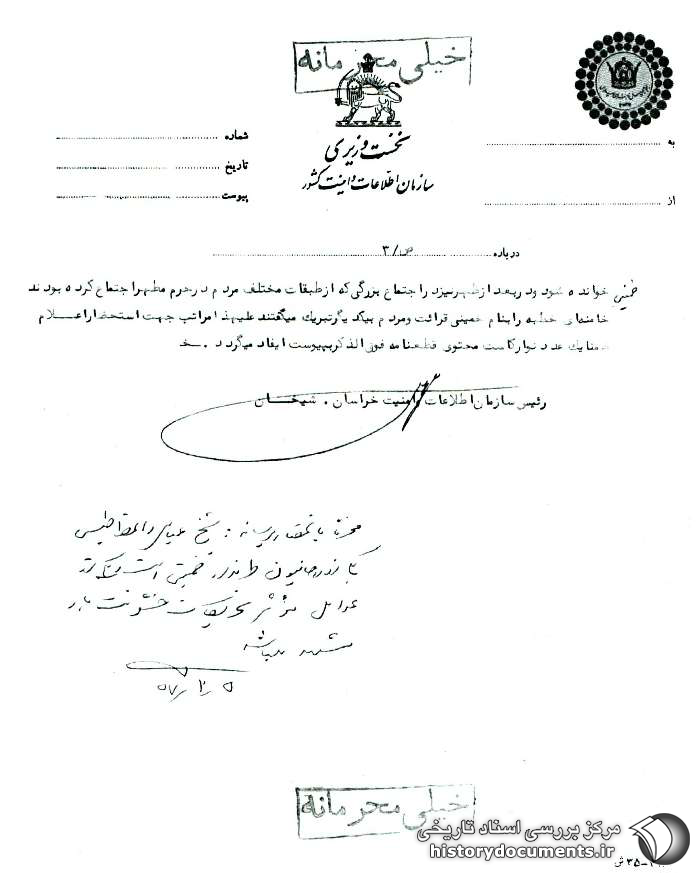 خیلی محرمانه
نخست وزیری
سازمان اطلاعات و امنیت کشور
به
از
شماره
تاریخ
پیوست
درباره ص/۳
خمینی خوانده شود ودربعد ازظهرنیزد راجتماع بزرگی که ازطبقات مختلف مردم د رحرم مطهراجتماع کرده بودند
خامنه‌ای خطبه رابنام خمینی قرائت ومردم بیکدیگرتبریک میگفتند علیهذا مراتب جهت استحضاراعلام
ضمنا یک عدد نوارکاست محتوی قطعنامه فوق الذکربپیوست ایفاد میگردد .
رئیس سازمان اطلاعات وامنیت خراسان . شیخان
شیخ عباس واعظ طبسی
از روحانیون طرفدار خمینی است
عوامل مؤثر تحریکات
مشهد میباشد
خیلی محرمانه
مرکز بررسی اسناد تاریخی
historydocuments.ir
۳۵ ش